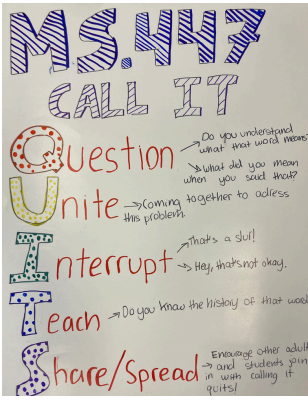 MS.447
CALL IT
Question
→ Do you understand
what that word means
→ What did you mean
when you said that?
Unite → Coming together to adress
this problem.
Interrupt
→ That's a slur!
→ Hey, that's not okay.
Teach → Do you know the history of that
Share/Spread → Encourage other adult
and students join
in with calling it
quits!